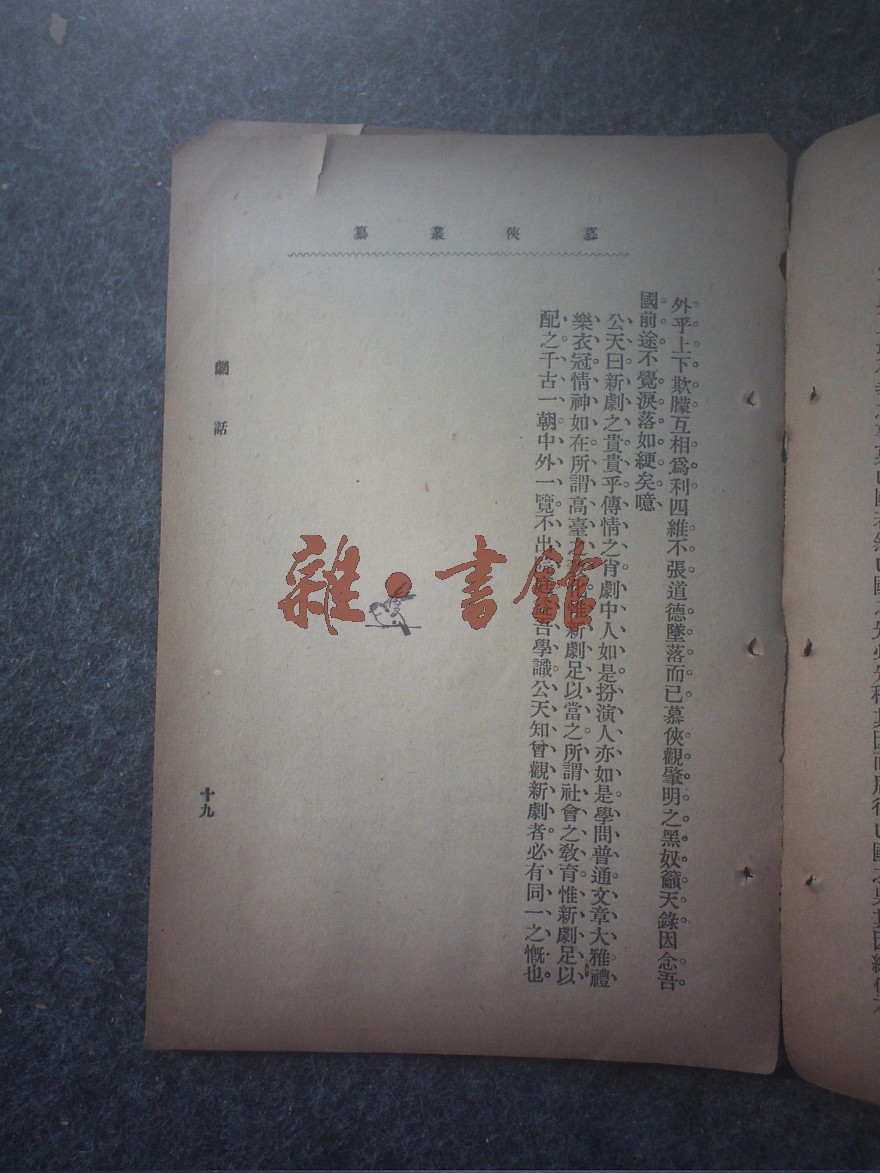 慕俠叢纂
外乎上下欺朦互相爲利四維不張道德墜落而已慕俠觀肇明之黑奴籲天錄因念吾
國前途不覺淚落如綆矣噫
公天曰新劇之貴貴乎傳情之肖劇中人如是扮演人亦如是學問普通文章大雅禮
樂衣冠情神如在所謂高臺惟新劇足以當之所謂社會之敎育惟新劇足以
配之千古一朝中外一覽不出吾學識公天知曾觀新劇者必有同一之慨也
劇話
十九
雜·書館